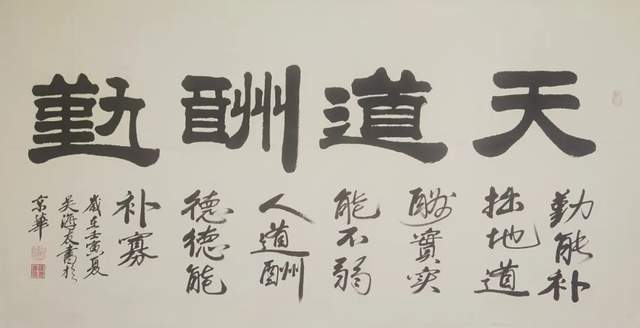 天道酬勤
勤能补
拙地道
酬實实
能不弱
人道酬
德德能
补寡
歲在壬寅夏
吴海書於
京華